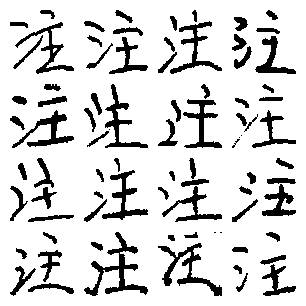 注注注注
注注注注
注注注注
注注注注